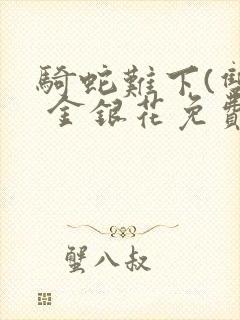 騎蛇難下(雙
金銀花免費
蟹八叔